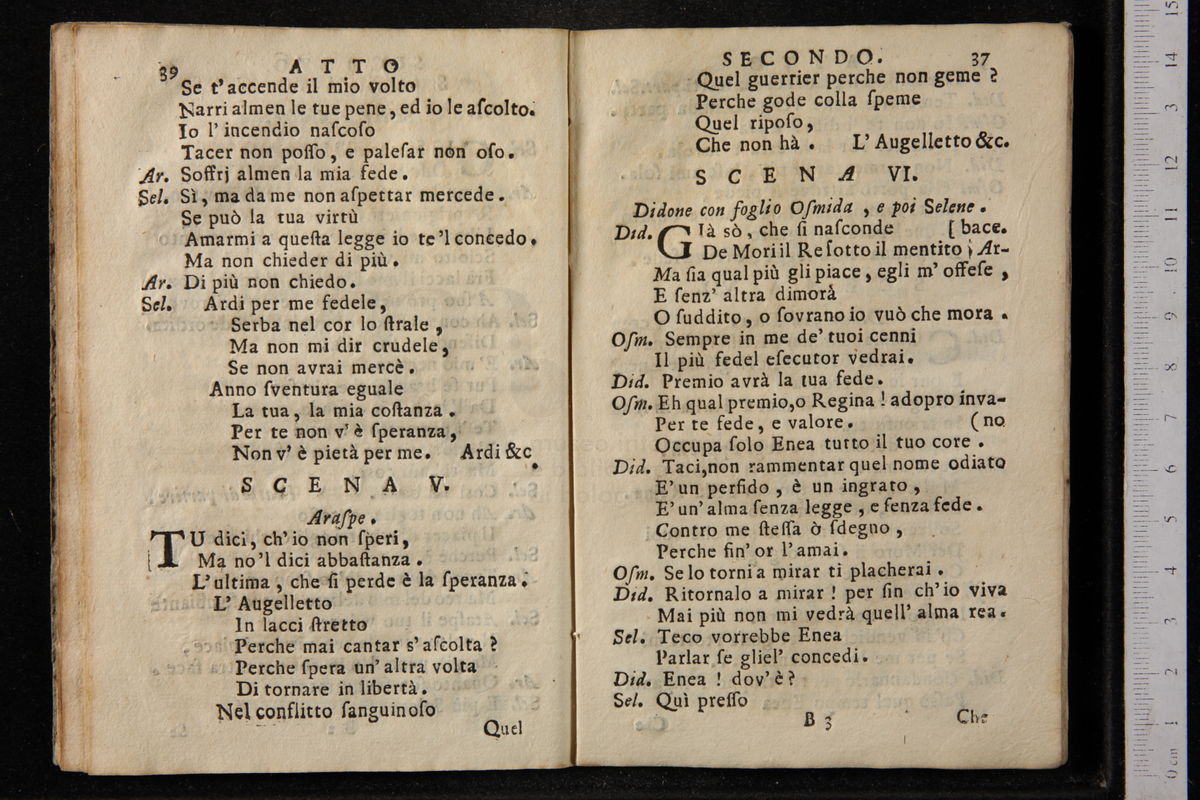 39 ATTO
Se t'accende il mio volto
Narri almen le tue pene, ed io le aſcolto.
Io l'incendio naſcoſo
Tacer non poſſo, e paleſar non oſo.
Ar. Soffrj almen la mia fede.
Sel. Sì, ma da me non aſpettar mercede.
Se può la tua virtù
Amarmi a queſta legge io te'l concedo.
Ma non chieder di più.
Ar. Di più non chiedo.
Sel. Ardi per me fedele,
Serba nel cor lo ſtrale,
Ma non mi dir crudele,
Se non avrai mercè.
Anno ſventura eguale
La tua, la mia coſtanza.
Per te non v'è ſperanza,
Non v'è pietà per me. Ardi &c.
SCENA V.
Araſpe.
TU dici, ch'io non ſperi,
Ma no'l dici abbaſtanza.
L'ultima, che ſi perde è la ſperanza.
L'Augelletto
In lacci ſtretto
Perche mai cantar s'aſcolta?
Perche ſpera un'altra volta
Di tornare in libertà.
Nel conflitto ſanguinoſo
Quel
SECONDO. 37
Quel guerrier perche non geme?
Perche gode colla ſpeme
Quel ripoſo,
Che non hà. L'Augelletto &c.
SCENA VI.
Didone con foglio Oſmida, e poi Selene.
Did. GIà sò, che ſi naſconde [bace.
De Mori il Re ſotto il mentito Ar-
Ma ſia qual più gli piace, egli m'offeſe,
E ſenz'altra dimorà
O ſuddito, o ſovrano io vuò che mora.
Oſm. Sempre in me de'tuoi cenni
Il più fedel eſecutor vedrai.
Did. Premio avrà la tua fede.
Oſm. Eh qual premio, o Regina! adopro inva-
Per te fede, e valore. (no
Occupa ſolo Enea tutto il tuo core.
Did. Taci, non rammentar quel nome odiato
E'un perfido, è un ingrato,
E'un'alma ſenza legge, e ſenza fede.
Contro me ſteſſa ò ſdegno,
Perche fin'or l'amai.
Oſm. Se lo torni a mirar ti placherai.
Did. Ritornalo a mirar! per fin ch'io viva
Mai più non mi vedrà quell'alma rea.
Sel. Teco vorrebbe Enea
Parlar ſe gliel'concedi.
Did. Enea! dov'è?
Sel. Quì preſſo
B 3 Che
0 cm 1 2 3 4 5 6 7 8 9 10 11 12 3 14 15